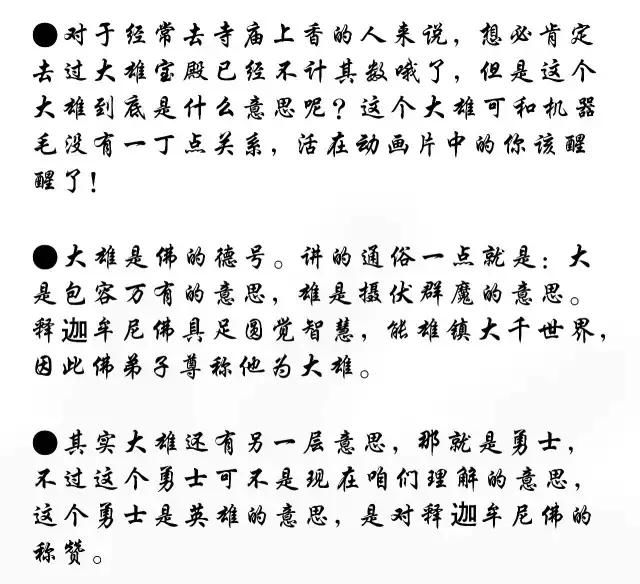 ●对于经常去寺庙上香的人来说，想必肯定
去过大雄宝殿已经不计其数哦了，但是这个
大雄到底是什么意思呢？这个大雄可和机器
毛没有一丁点关系，活在动画片中的你该醒
醒了！
●大雄是佛的德号。讲的通俗一点就是：大
是包容万有的意思，雄是摄伏群魔的意思。
释迦牟尼佛具足圆觉智慧，能雄镇大千世界，
因此佛弟子尊称他为大雄。
●其实大雄还有另一层意思，那就是勇士，
不过这个勇士可不是现在咱们理解的意思，
这个勇士是英雄的意思，是对释迦牟尼佛的
称赞。